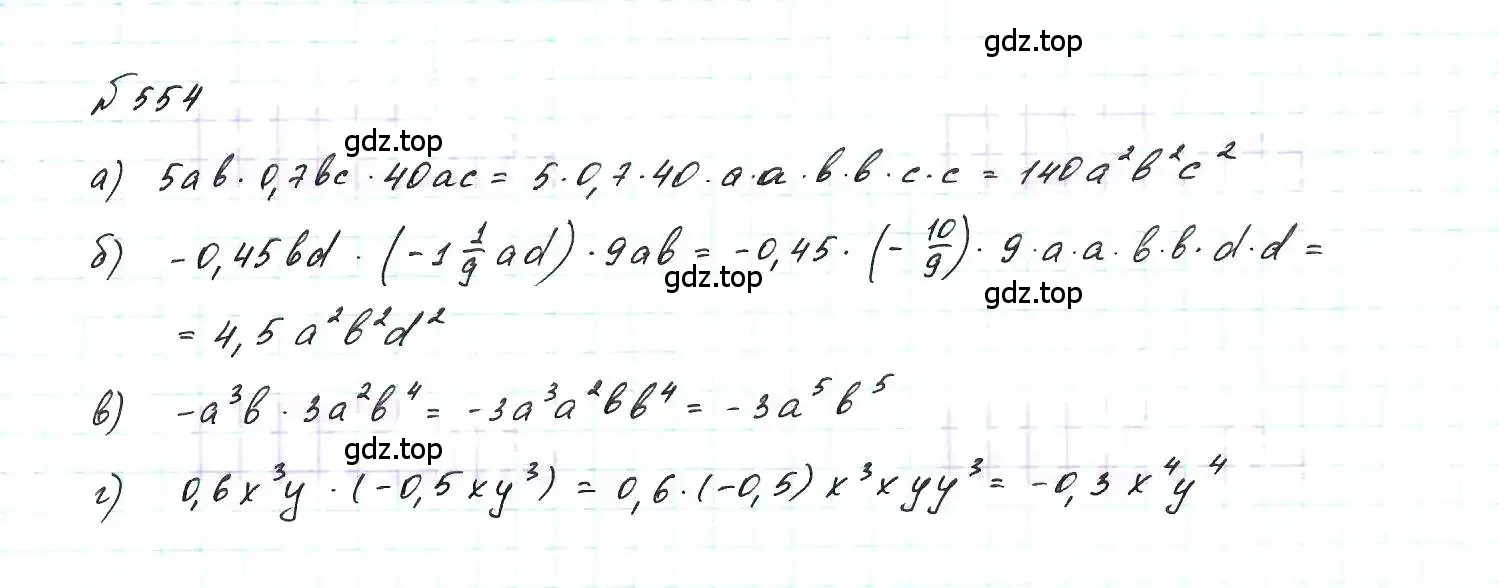 gdz.top
№ 554
gdz.top
а) 5ab · 0,7bc · 40ac = 5 · 0,7 · 40 · a · a · b · b · c · c = 140a²b²c²
б) -0,45bd · (-1 1/9 ad) · 9ab = -0,45 · (-10/9) · 9 · a · a · b · b · d · d =
gdz.top
gdz.top
= 4,5 a²b²d²
в) -a³b · 3a²b⁴ = -3a³a²bb⁴ = -3a⁵b⁵
gdz.top
г) 0,6x³y · (-0,5xy³) = 0,6 · (-0,5) x³xyy³ = -0,3x⁴y⁴